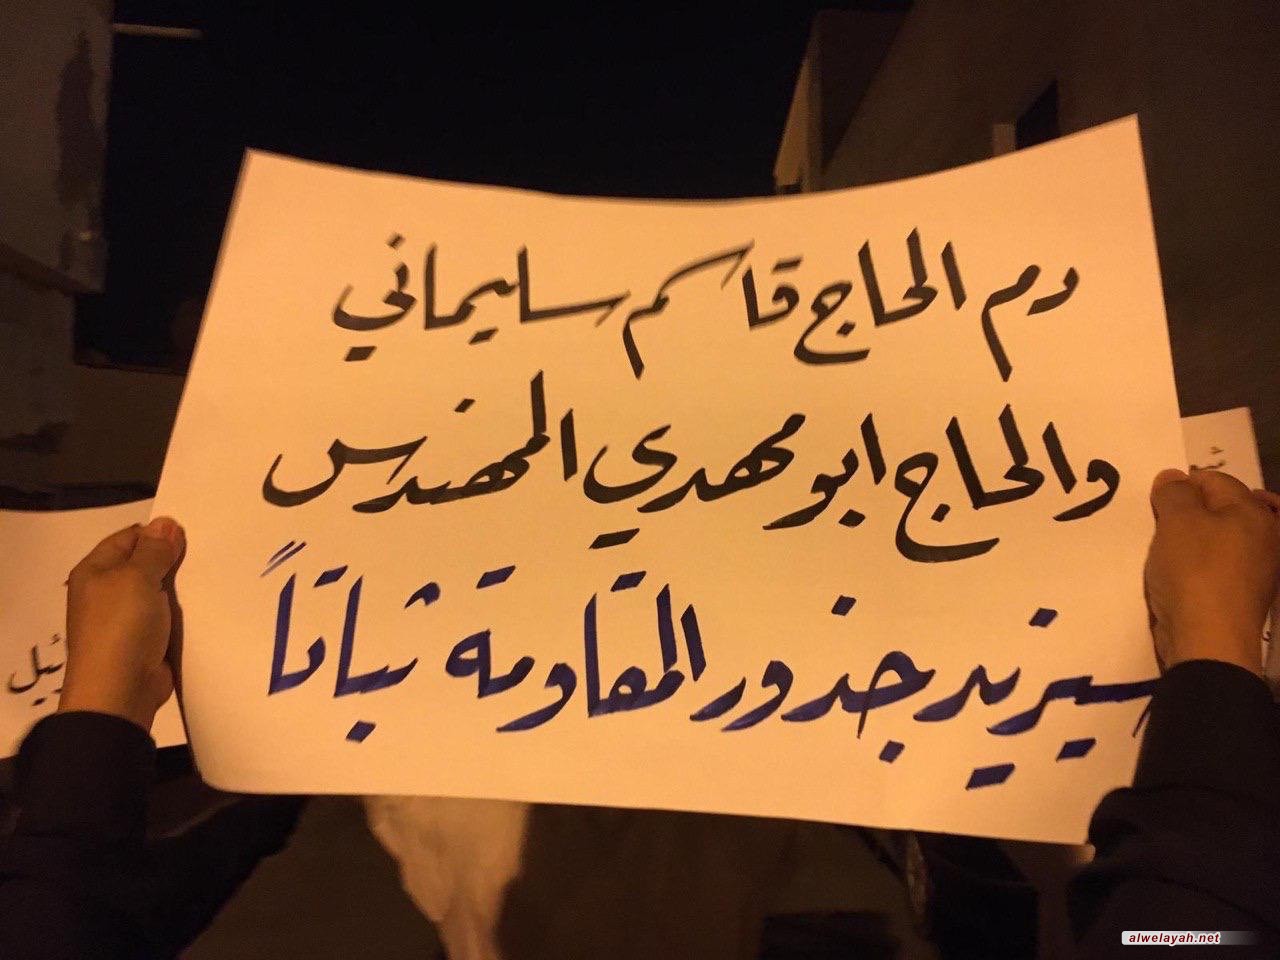 دم الحاج قاسم سليماني
والحاج ابو مهدي المهندس
سيزيد جذور المقاومة ثباتاً
alwelayah.net